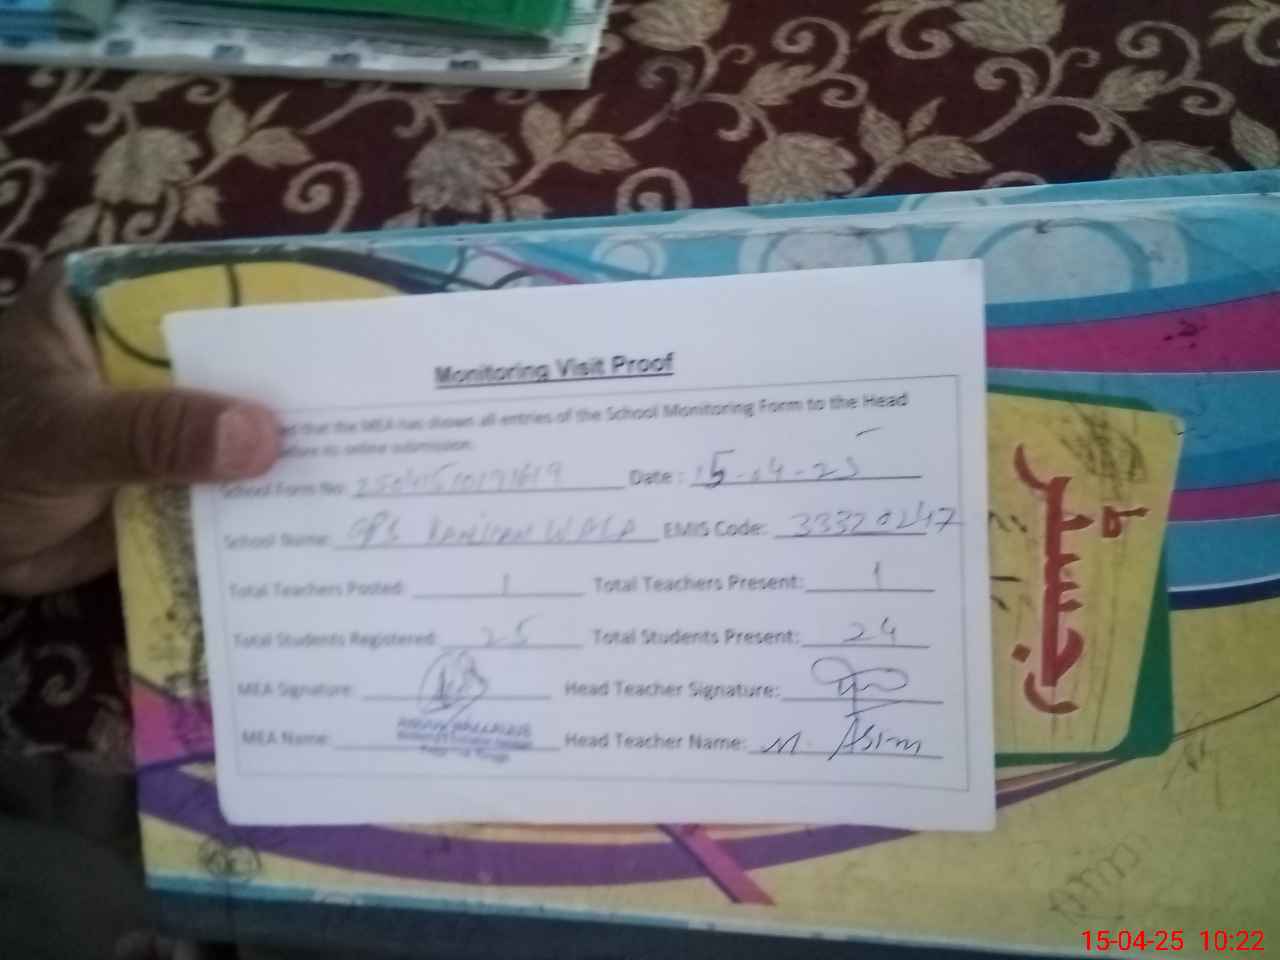 Monitoring Visit Proof
that the MEA has shown all entries of the School Monitoring Form to the Head
online submission.
School Form No: Date: 15-04-25
School Name: GPS WALA EMIS Code: 33320247
Total Teachers Posted: 1 Total Teachers Present: 1
Total Students Registered: 25 Total Students Present: 24
MEA Signature: Head Teacher Signature:
MEA Name: Head Teacher Name: M. Asim
رجسٹر
15-04-25 10:22